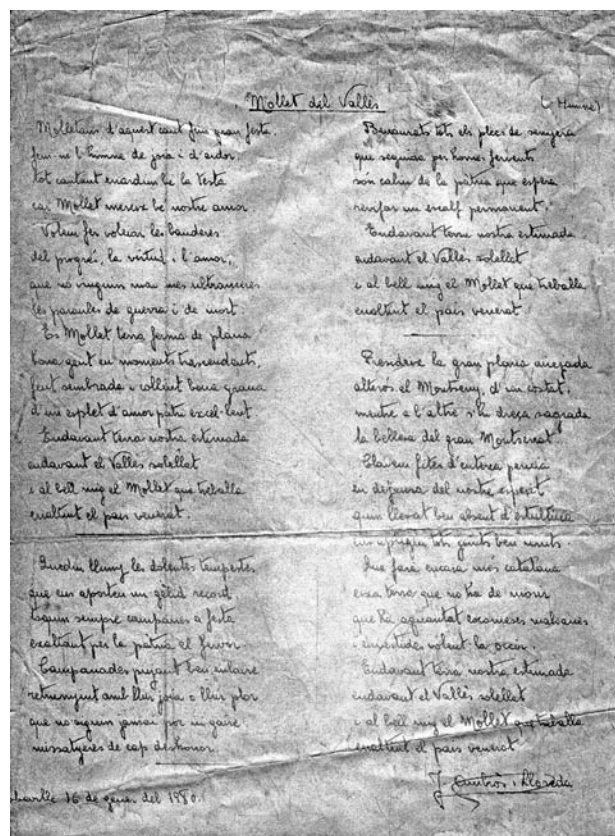 Mollet del Vallès
(Himne)
Molletans d'aquest cant fem gran festa
fem-ne l'himne de joia i d'ardor,
tot cantant enardim be la testa
car Mollet mereix be nostre amor
Volem fer voleiar les banderes
del progrés, la virtut i l'amor,
que no vinguin mai mes ultranceres
les paraules de guerra i de mort.
Es Mollet terra ferma de plana
bona gent en moments trascendents,
fent sembrada i collint bona grana
d'un esplet d'amor patri excel·lent.
Endavant terra nostra estimada
endavant el Vallès solellat
i al bell mig el Mollet que treballa
enaltint el pais venerat.
Quedin lluny les dolentes tempestes
que ens aporten un gèlid record
toquin sempre campanes a festa
exaltant per la pàtria el fervor
Campanades pujant ben enlaire
retrunyint amb llur joia o llur plor
que no siguin jamai per un gaire
missatgeres de cap deshonor.
16 de gener del 1980.
Benaurats tots els plecs de senyera
que seguida per homes fervents
són caliu de la pàtria que espera
renfor un escalf permanent.
Endavant terra nostra estimada
endavant el Vallès solellat
i al bell mig el Mollet que treballa
enaltint el pais venerat.
Presideix la gran plana
alterós el Montseny, d'un costat,
mentre a l'altre s'hi dreça sagrada
la bellesa del gran Montserrat.
Clavem fites d'entera
en defensa del nostre esperit
llevat ben absent d'estultícia
tots junts ben units.
Que farà encara més catalana
eixa terra que no ha de morir
que ha aguantat escomeses malsanes
i envestides volent-la occir.
Endavant terra nostra estimada
endavant el Vallès solellat
i al bell mig el Mollet que treballa
enaltint el pais venerat